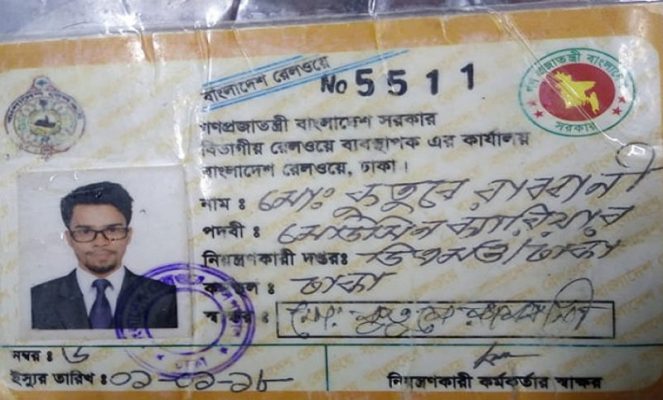 বাংলাদেশ রেলওয়ে
No 5511
গণপ্রজাতন্ত্রী বাংলাদেশ
সরকার
গণপ্রজাতন্ত্রী বাংলাদেশ সরকার
বিভাগীয় রেলওয়ে ব্যবস্থাপক এর কার্যালয়
বাংলাদেশ রেলওয়ে, ঢাকা।
নাম ঃ মোঃ কুতুবে রাব্বানী
পদবী ঃ মেডিসিন ক্যারিয়ার
নিয়ন্ত্রণকারী দপ্তরঃ ডিএমও/ঢাকা
ঃ ঢাকা
স্বাক্ষর ঃ মোঃ কুতুবে
নম্বর ঃ ৬
ইস্যুর তারিখ ঃ ০১-০১-১৮
নিয়ন্ত্রণকারী কর্মকর্তার স্বাক্ষর